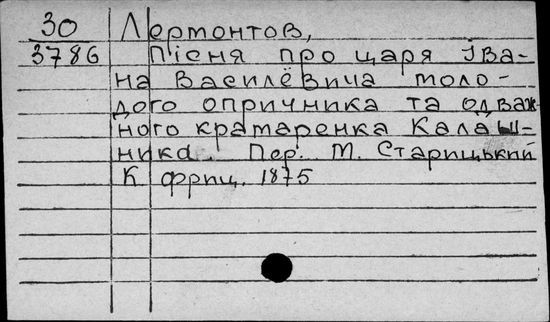 30 Лермонтов,
3786 Пісня про царя Іва-
на Василёвича моло-
дого опричника та одваж-
ного крамаренка Калаш-
ника. Пер. М. Старицький
К. фриц. 1875